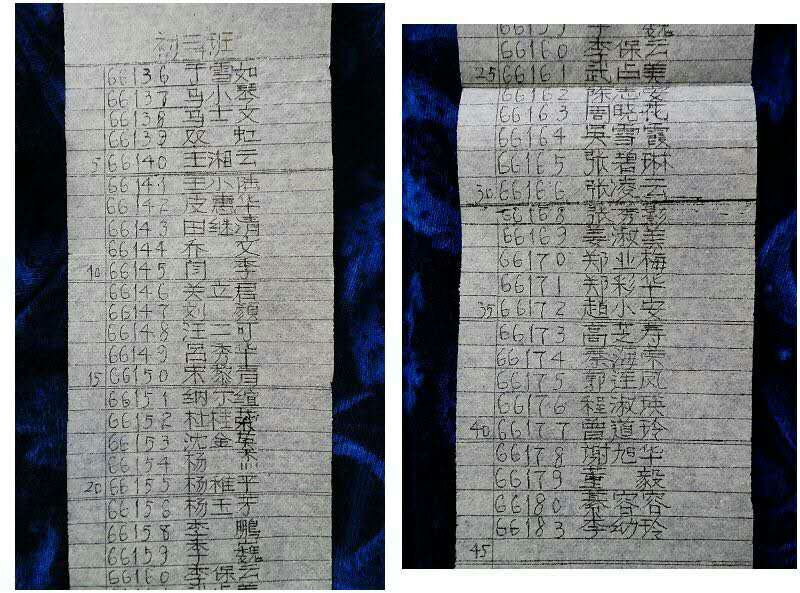 初三班
66136 于雪如
66137 马小琴
66138 马士文
66139 双虹
5 66140 王湘云
66141 王小陆
66142 皮惠华
66143 田继清
66144 乔文
10 66145 闫季
66146 关立君
66147 刘颜
66148 汪三可
66149 宫秀华
15 66150 宋黎青
66151 纳尔
66152 杜桂荣
66153 沈金
66154 杨
20 66155 杨维平
66156 杨玉芳
66158 李鹏
66159 李巍
66160 李保云
66159 李巍
66160 李保云
25 66161 武占美
66162 陈志安
66163 周晓
66164 吴雪霞
66165 张碧琳
30 66166 张凌云
66168 张秀彭
66169 姜淑美
66170 郑业梅
66171 郑彩华
35 66172 赵小安
66173 高芝寿
66174 蔡海荣
66175 郭连凤
66176 程淑瑛
40 66177 曾道玲
66178 谢旭华
66179 董毅
66180 慕容容
66183 李幼玲
45